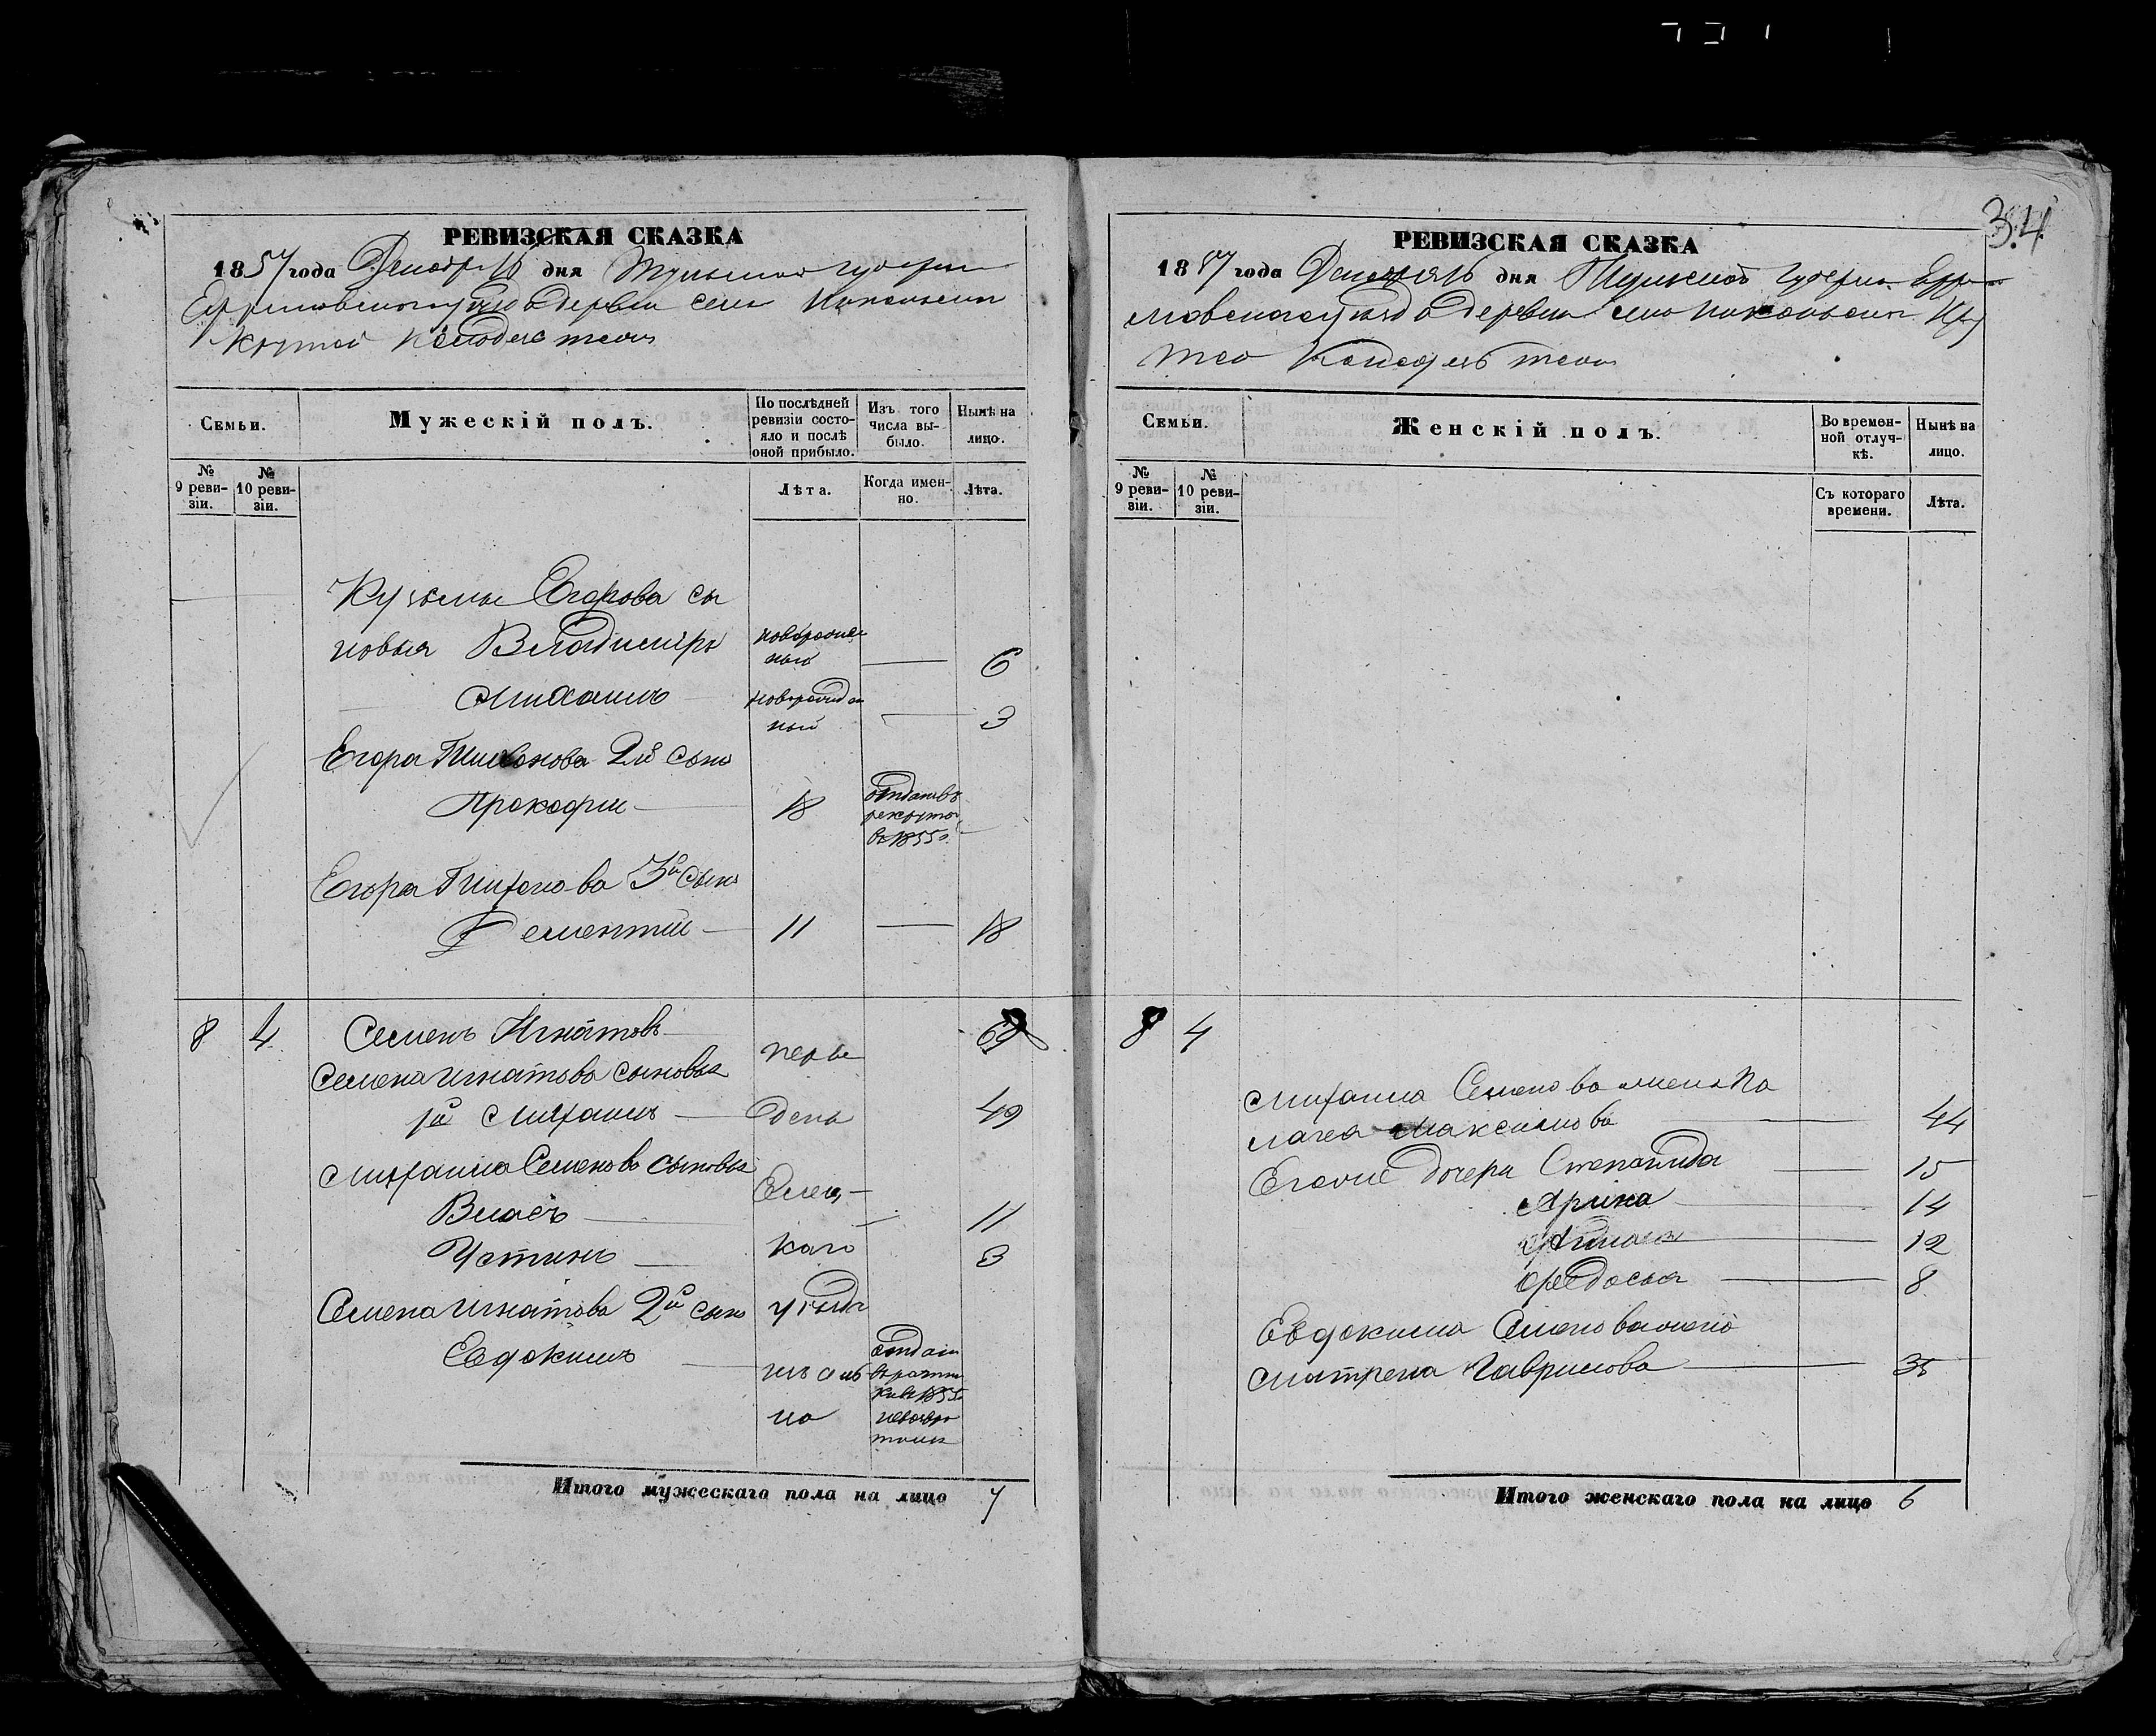 34
РЕВИЗСКАЯ СКАЗКА
1857 года Декабря 16 дня Тульской губернии
Ефремовскаго уезда деревни села Никольскаго
Крутой Колодезь тож
Семьи.
Мужескій полъ.
По послѣдней ревизіи состо-
яло и послѣ оной прибыло.
Изъ того числа вы-
было.
Нынѣ на лицо.
№ 9 реви-
зіи.
№ 10 реви-
зіи.
Лѣта.
Когда имен-
но.
Лѣта.
Кузьмы Егорова сы
новья Владимиръ новорожден ный — 6
Михаилъ новорожден ный — 3
Егора 2й сынъ
Прокофии 18 отданъ въ рекруты въ 1855 г.
Егора 3й сынъ
Дементии 11 — 18
8 4 Семенъ Игнатовъ 69
Семена Игнатова сыновья пере
1й Михаилъ 49
Михаила Семенова сыновья
Власъ Елец 11
Устинъ каго 3
Семена Игнатова 2й сынъ уезда
Евдокимъ
но
Итого мужескаго пола на лицо 7
РЕВИЗСКАЯ СКАЗКА
1857 года Декабря 16 дня Тульской губернии Ефре
мовскаго уезда деревни села Никольскаго Кру
той Колодезь тож
Семьи.
Женскій полъ.
Во времен-
ной отлуч-
кѣ.
Нынѣ на лицо.
№ 9 реви-
зіи.
№ 10 реви-
зіи.
Съ котораго времени.
Лѣта.
8 4
Михаила Семенова жена Па
лагея Максимова 44
Еговые дочери Степанида 15
Арина 14
12
Федосья 8
Евдокима Семенова жена
Матрена Гаврилова 35
Итого женскаго пола на лицо 6